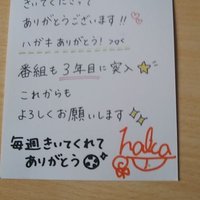 きいてくださって
ありがとうございます!!
ハガキありがとう!
番組も3年目に突入
これからも
よろしくお願いします
毎週きいてくれて
ありがとう
halca